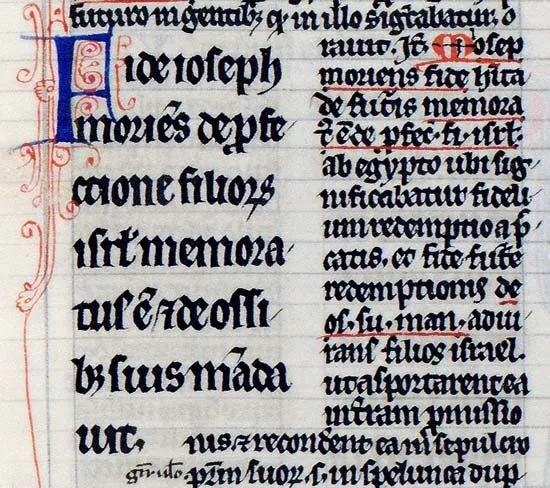 futuro in gentibꝫ qͥ in illo sigͥtabatur. o
Fide ioseph
moriēs de ꝓfe
ctione filioꝝ
isrł memora
tus ē ⁊ de ossi
bꝫ suis māda
uit.
rauit. Josep
moriens fide
de futīs memora
t᷒ ē de ꝓfec. fi. isrł.
ab egypto ubi sig
nificabatur fideli
um redemptio a p̄
catis. et fide future
redemptionis de
os. su. man. adiu
rans filios israel.
ut asportarent ea
in terram ꝓmissio
nis ⁊ recondent ea in sepulcro
pr̄m suoꝝ .s. in spelunca dup